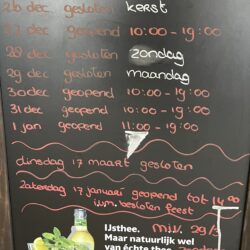 26 dec gesloten kerst
27 dec geopend 10:00 - 19:00
28 dec gesloten zondag
29 dec gesloten maandag
30 dec geopend 10:00 - 19:00
31 dec geopend 10:00 - 19:00
1 jan geopend 11:00 - 19:00
dinsdag 17 maart gesloten
zaterdag 17 januari geopend tot 14:00
i.v.m. besloten feest
IJsthee. m.i.v. 29/3
Maar natuurlijk wel
van échte thee.